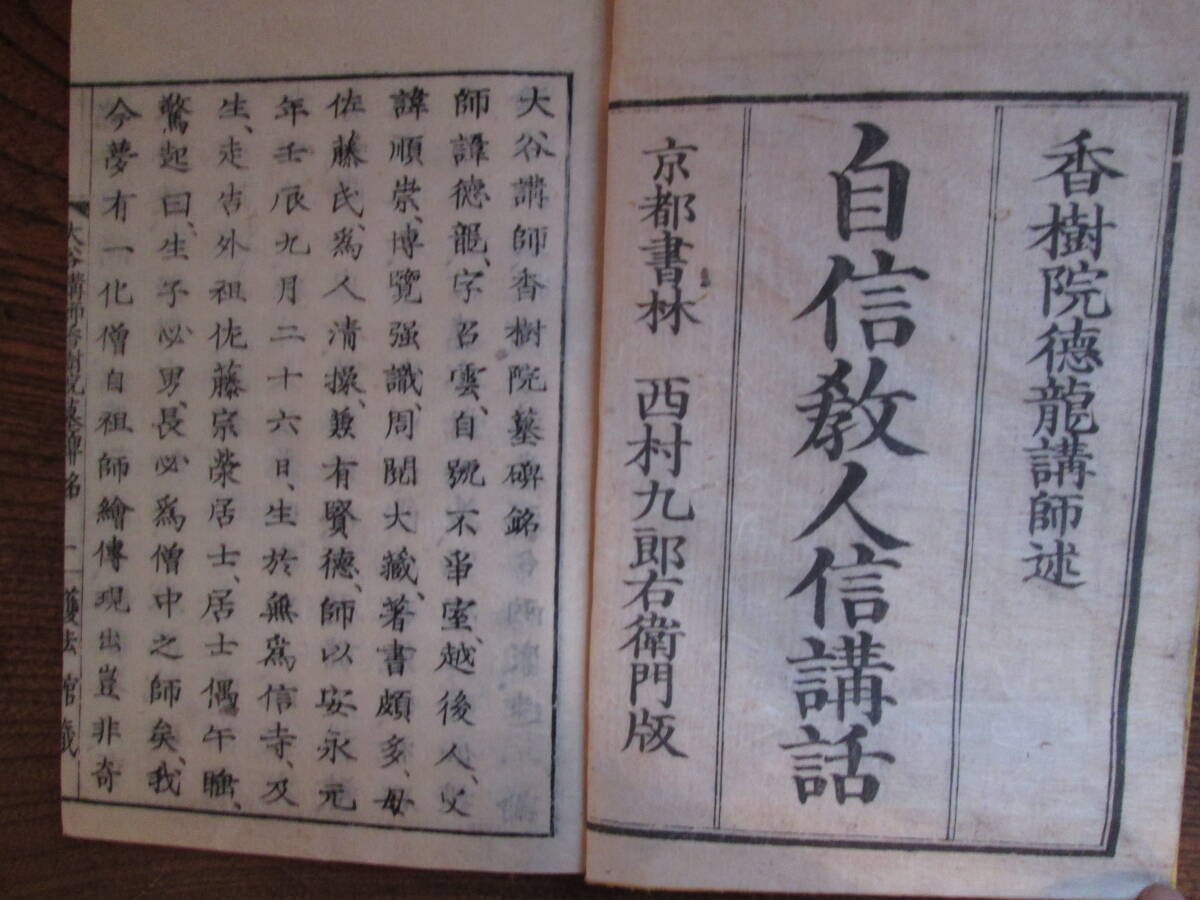 香樹院德龍講師述
自信教人信講話
京都書林　西村九郎右衛門版
大谷講師香樹院墓碑銘
師諱德龍、字召雲、自號不爭室、越後人、父
諱順崇、博覽强識、周閱大藏、著書頗多、母
佐藤氏、爲人清操、兼有賢德、師以安永元
年壬辰九月二十六日、生於無爲信寺、及
生、走告外祖佐藤宗榮居士、居士偶午睡、
驚起曰、生子必男、長必爲僧中之師矣、我
今夢有一化僧自祖師繪傳現出豈非奇
大谷講師香樹院墓碑銘　一　護法館藏